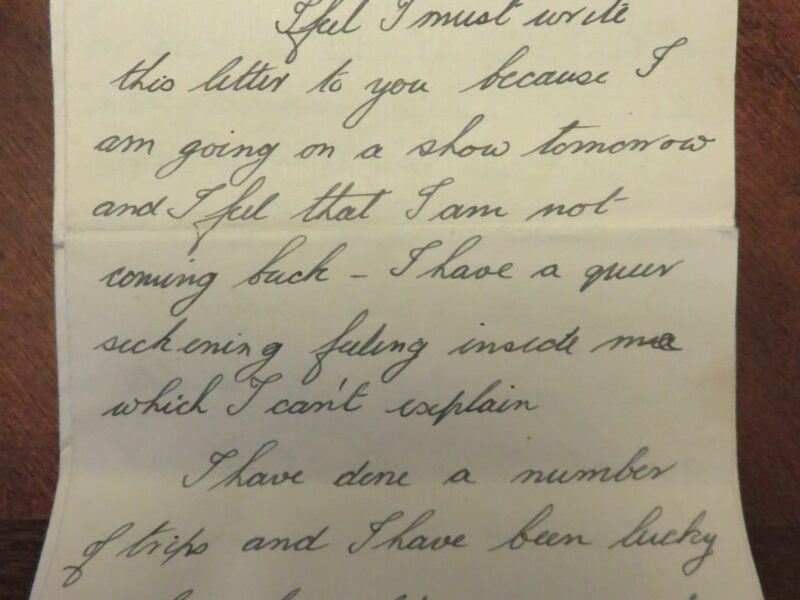 I feel I must write
this letter to you because I
am going on a show tomorrow
and I feel that I am not
coming back - I have a queer
sickening feeling inside me
which I can't explain
I have done a number
of trips and I have been lucky